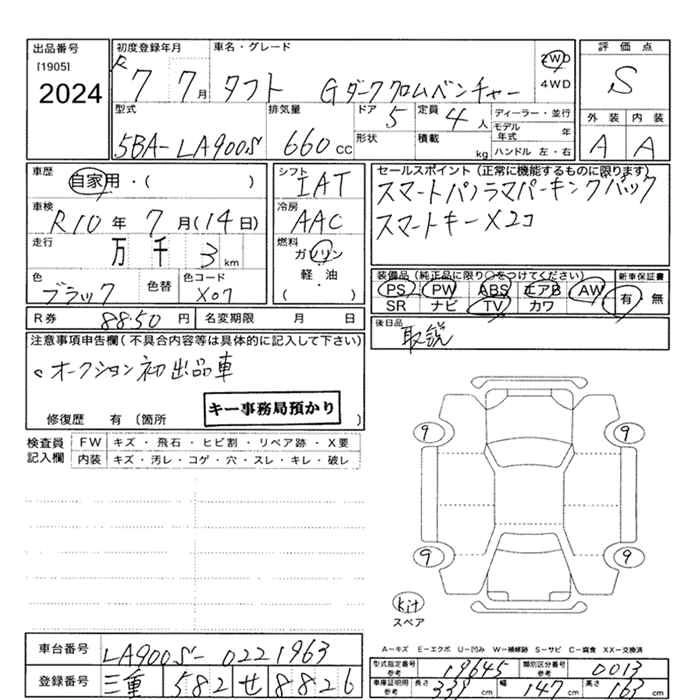 出品番号
[1905]
2024
初度登録年月
R7 7月
車名・グレード
タフト Gダーククロムベンチャー
2WD
4WD
評価点
S
外装 内装
A A
型式
5BA-LA900S
排気量
660cc
ドア
5
形状
定員
4人
積載
kg
ディーラー・並行
モデル年式 年
ハンドル 左・右
車歴
自家用・( )
車検
R10年 7月(14日)
走行
万 千 3km
色
ブラック
色替
色コード
X07
シフト
IAT
冷房
AAC
燃料
ガソリン
・
軽・油
( )
セールスポイント(正常に機能するものに限ります)
スマートパノラマパーキングパック
スマートキー×2コ
装備品(純正品に限り○をつけてください)
PS PW ABS エアB AW
SR ナビ TV カワ
新車保証書
有・無
R券 8850円
名変期限 月 日
後日品
取説
注意事項申告欄(不具合内容等は具体的に記入して下さい)
○オークション初出品車
キー事務局預かり
修復歴 有 〔箇所 〕
検査員記入欄
FW キズ・飛石・ヒビ割・リペア跡・X要
内装 キズ・汚レ・コゲ・穴・スレ・キレ・破レ
9 9
9 9
kit
スペア
A―キズ E―エクボ U―凹み W―補修跡 S―サビ C―腐食 XX―交換済
車台番号 LA900S-0221963
登録番号 三重 582 せ 8826
型式指定番号 参考 19645
類別区分番号 参考 0013
車庫証明用 参考 長さ 339cm 幅 147cm 高さ 163cm